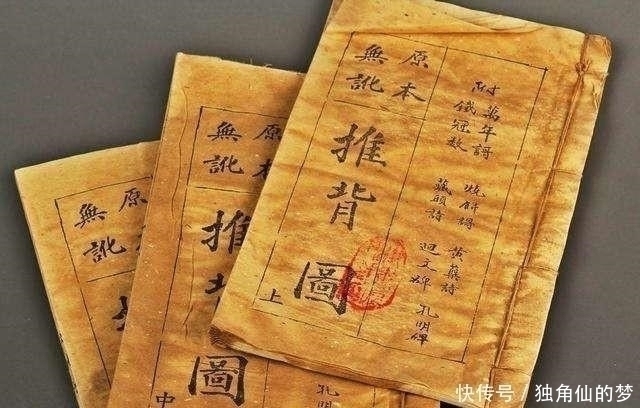 附萬年謌 燒餅謌 黃蘗詩
鐵冠數 藏頭詩 迴文碑 孔明碑
原本
無訛
推背圖
上
原本
無訛
推背圖
中
孔明碑
原本
無訛
快传号 / 独角仙的梦